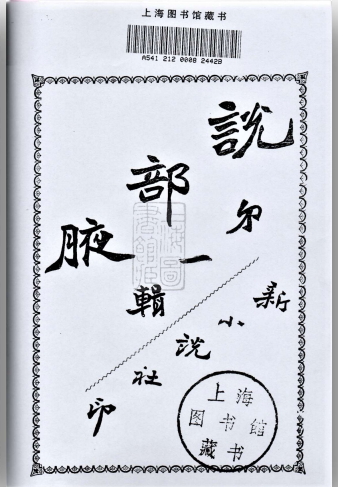 上海图书馆藏书
A541 212 0008 2442B
說部腋
㐧一輯
新小説社印
上海
图书馆
藏书